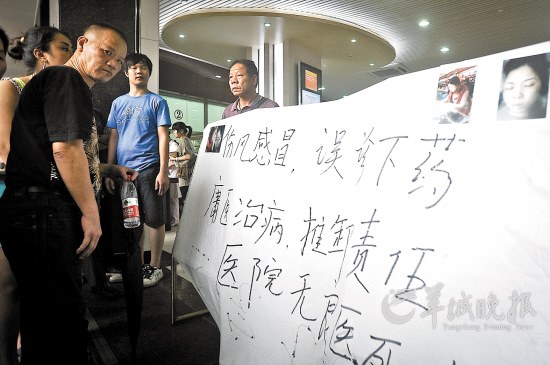 ②
伤风感冒,误诊下药
庸医治病,推卸责任
医院无医死
羊城晚报
Yangcheng Evening News